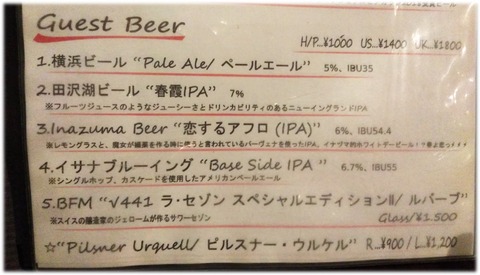 Guest Beer
H/P...¥1000 US...¥1400 UK...¥1800
1.横浜ビール “Pale Ale/ ペールエール” 5%、IBU35
2.田沢湖ビール “春霞IPA” 7%
※フルーツジュースのようなジューシーさとドリンカビリティのあるニューイングランドIPA
3.Inazuma Beer “恋するアフロ (IPA)” 6%、IBU54.4
※レモングラスと、魔女が媚薬を作る時に使うと言われているバーヴェナを使ったIPA。イナヅマ的ホワイトデービール!?
4.イサナブルーイング “Base Side IPA ” 6.7%、IBU55
※シングルホップ、カスケードを使用したアメリカンペールエール
5.BFM “√441 ラ・セゾン スペシャルエディションⅡ/ ルバーブ”
※スイスの醸造家のジェロームが作るサワーセゾン Glass/¥1,500
☆“Pilsner Urquell/ ピルスナー・ウルケル” R...¥900 / L...¥1,200